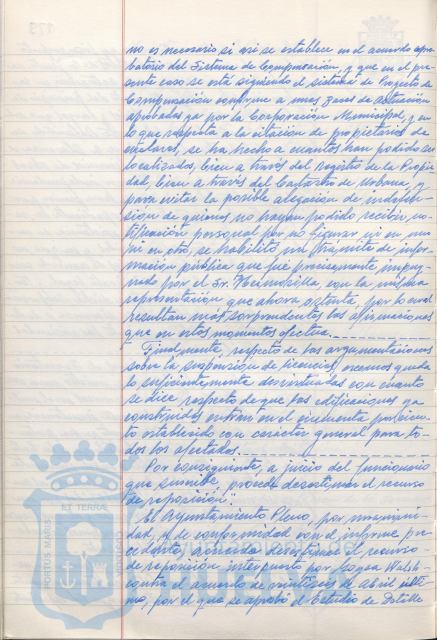 no es necesario si así se establece en el acuerdo apro-
batorio del Sistema de Compensación, y que en el pre-
sente caso se está siguiendo el sistema de Proyecto de
Compensación conforme a unas Bases de actuación
aprobadas ya por la Corporación Municipal, y en
lo que respecta a la citación de propietarios de
enclaves, se ha hecho a cuantos han podido ser
localizados, bien a través del registro de la Propie-
dad, bien a través del Catastro de Urbana, y
para evitar la posible alegación de indefen-
sión de quienes no hayan podido recibir no-
tificación personal por no figurar ni en uno
ni en otro, se habilitó un trámite de infor-
mación pública que fue precisamente impug-
nado por el Sr. con la misma
representación que ahora ostenta, por lo cual
resultan más sorprendentes las afirmaciones
que en estos momentos efectua.
Finalmente, respecto de las argumentaciones
sobre la suspensión de licencias, creemos queda
lo suficientemente desvirtuadas con cuanto
se dice respecto de que las edificaciones ya
construidas entran en el cincuenta por cien-
to establecido con carácter general para to-
dos los afectados.
Por consiguiente, a juicio del funcionario
que suscribe, procede desestimar el recurso
de reposición".
El Ayuntamiento Pleno, por unanimi-
dad, y de conformidad con el informe pre-
cedente, acuerda desestimar el recurso
de reposición interpuesto por Walsh
contra el acuerdo de veintiseis de Abril últi-
mo, por el que se aprobó el Estudio de Detalle
PORTUS MARIS
ET TERRA